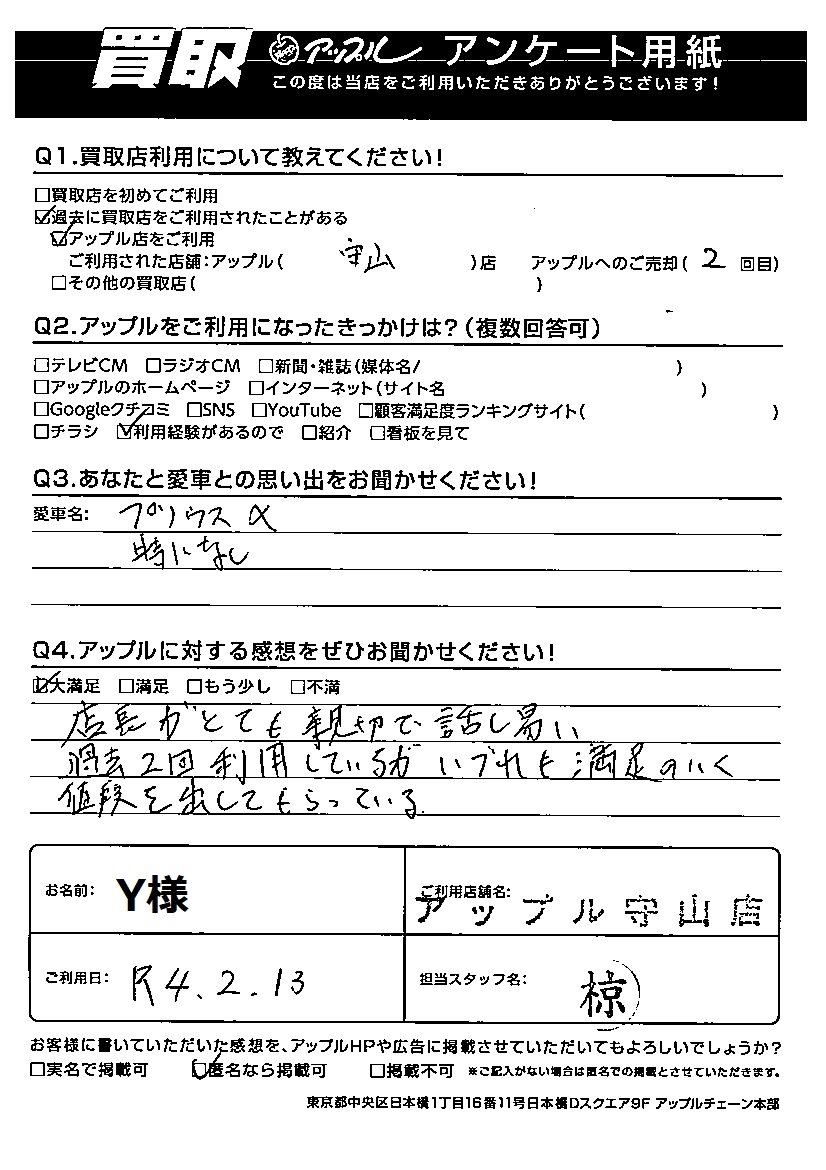 買取 アップル アンケート用紙
この度は当店をご利用いただきありがとうございます!
Q1.買取店利用について教えてください!
□買取店を初めてご利用
☑過去に買取店をご利用されたことがある
☑アップル店をご利用
ご利用された店舗:アップル( 守山 )店 アップルへのご売却( 2 回目)
□その他の買取店( )
Q2.アップルをご利用になったきっかけは?(複数回答可)
□テレビCM □ラジオCM □新聞・雑誌(媒体名/ )
□アップルのホームページ □インターネット(サイト名 )
□Googleクチコミ □SNS □YouTube □顧客満足度ランキングサイト( )
□チラシ ☑利用経験があるので □紹介 □看板を見て
Q3.あなたと愛車との思い出をお聞かせください!
愛車名: プリウスα
特になし
Q4.アップルに対する感想をぜひお聞かせください!
☑大満足 □満足 □もう少し □不満
店長がとても親切で話し易い
過去2回利用しているがいづれも満足のいく
値段を出してもらっている.
お名前: Y様 ご利用店舗名: アップル守山店
ご利用日: R4.2.13 担当スタッフ名: 椋
お客様に書いていただいた感想を、アップルHPや広告に掲載させていただいてもよろしいでしょうか?
□実名で掲載可 ☑匿名なら掲載可 □掲載不可 ※ご記入がない場合は匿名での掲載とさせていただきます。
東京都中央区日本橋1丁目16番11号日本橋Dスクエア9F アップルチェーン本部